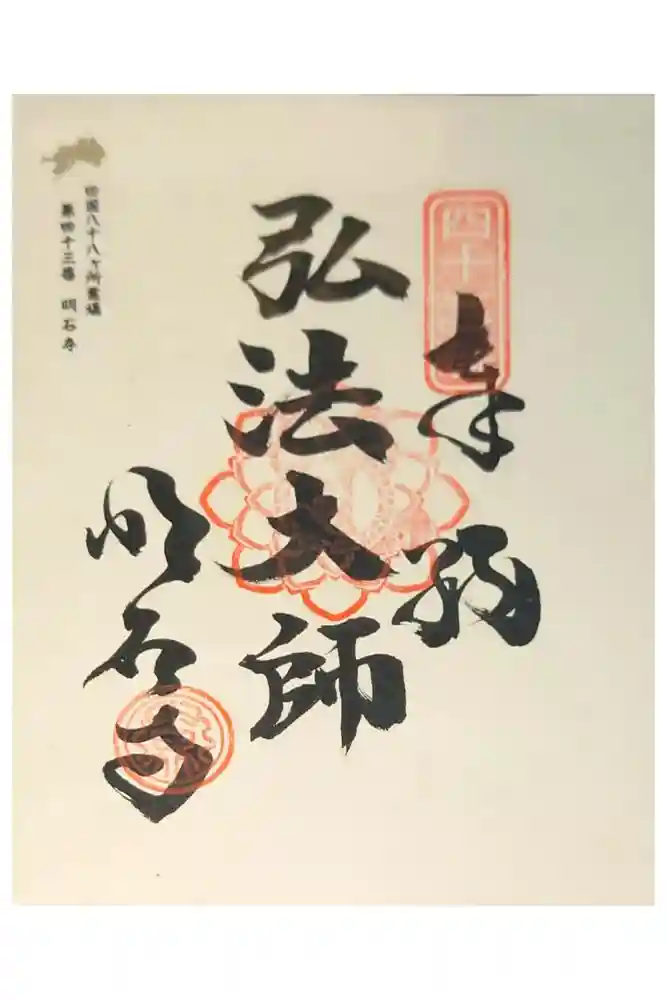 四十
奉納
弘法大師
明石寺
四国八十八ヶ所霊場
第四十三番 明石寺